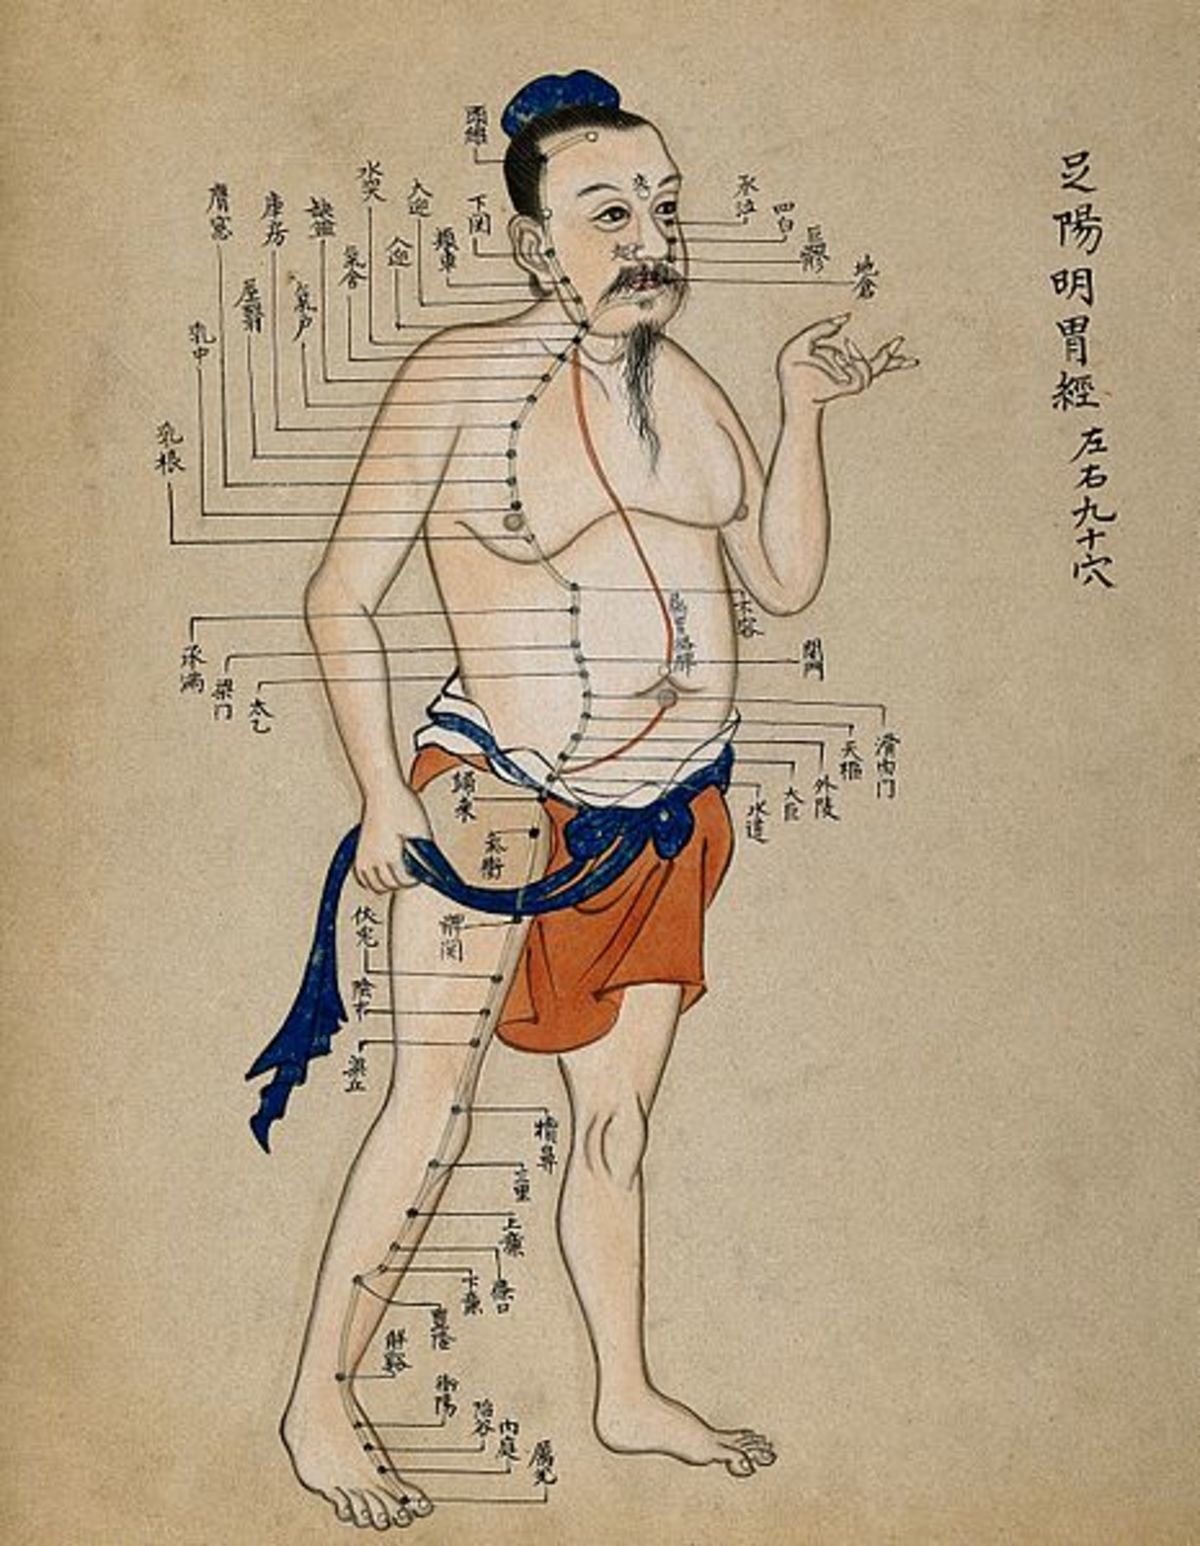 足陽明胃經 左右九十穴
頭維
下関
頰車
大迎
人迎
水突
氣舍
缺盆
氣户
庫房
屋翳
膺窓
乳中
乳根
承泣
四白
巨髎
地倉
不容
承滿
梁门
関門
太乙
滑肉门
天樞
外陵
大巨
水道
歸來
氣衝
髀関
伏兎
陰市
梁丘
犢鼻
三里
上廉
條口
下廉
豐隆
解谿
衝陽
陷谷
内庭
厲兊